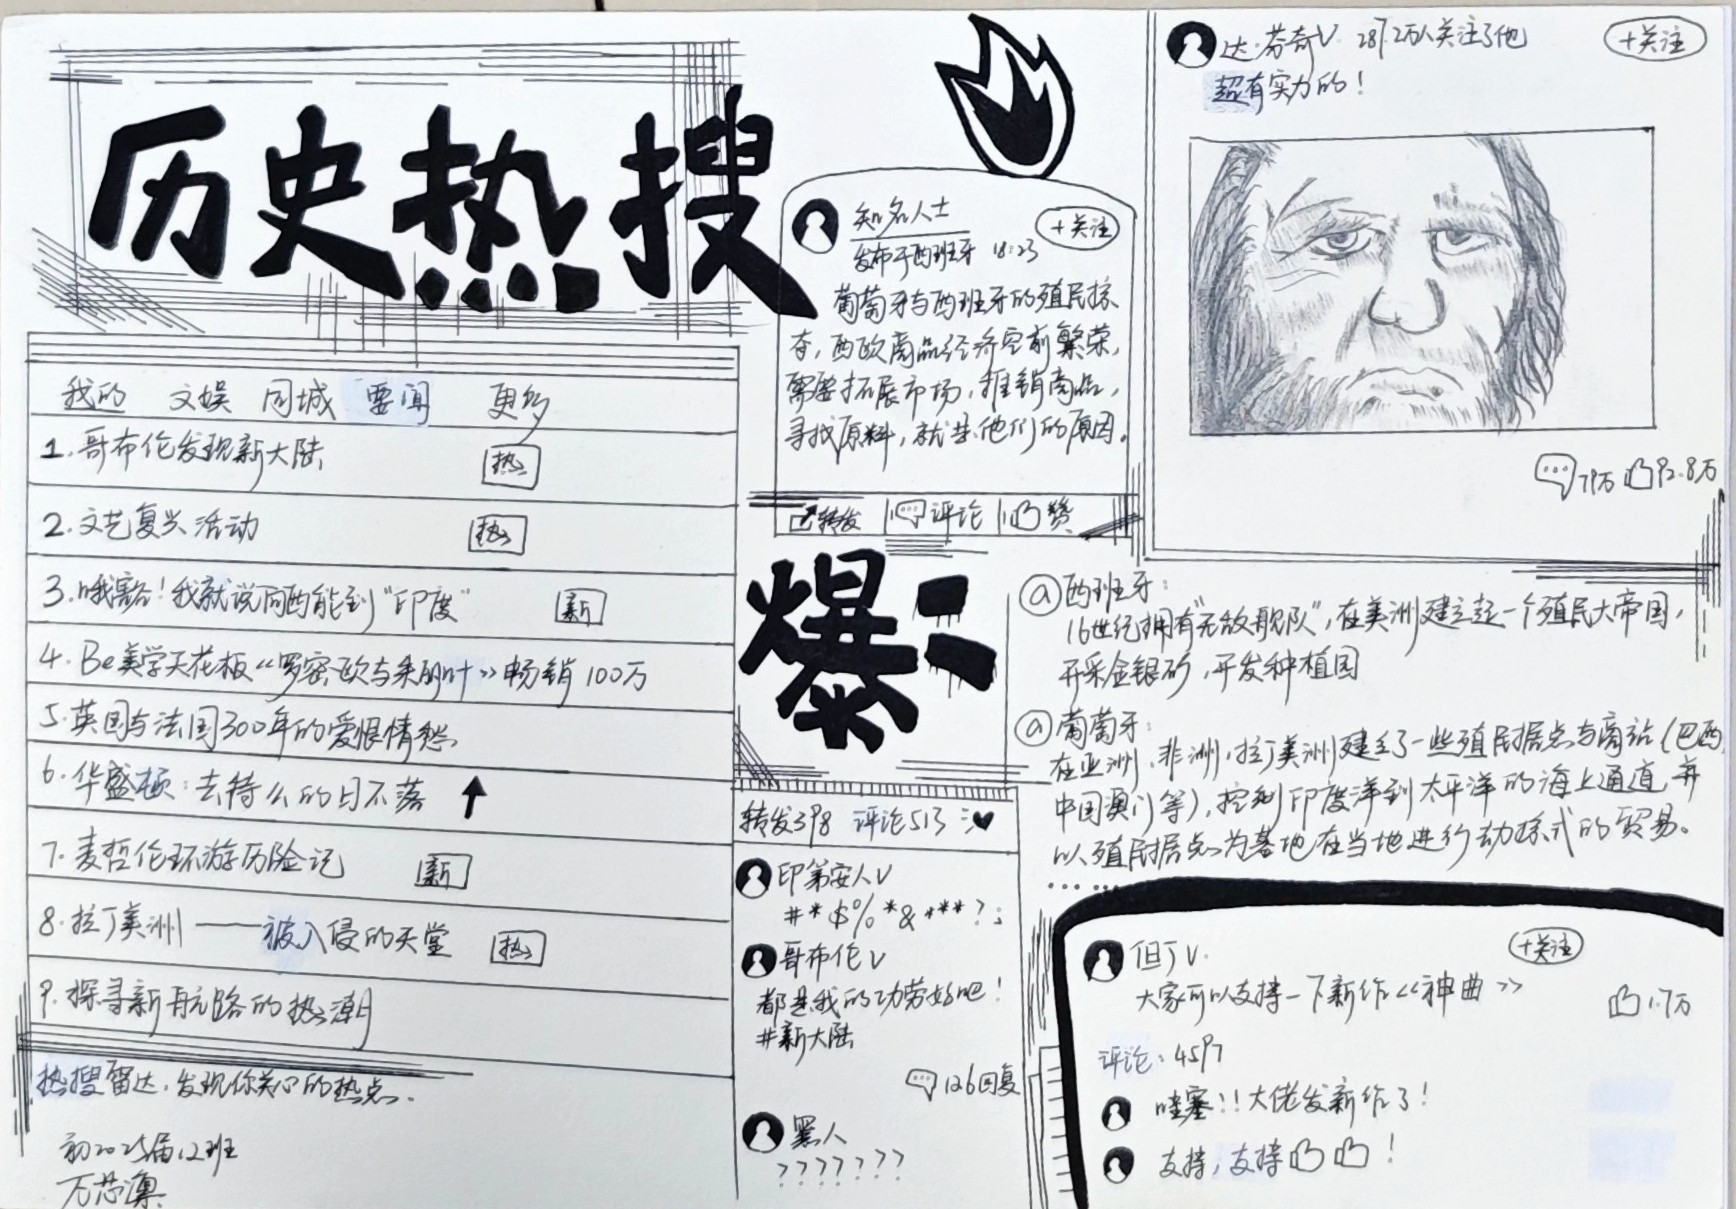 历史热搜
我的 文娱 同城 要闻 更多
1.哥布伦发现新大陆 热
2.文艺复兴活动 热
3.哦豁!我就说向西能到“印度” 新
4.Be美学天花板《罗密欧与朱丽叶》畅销100万
5.英国与法国300年的爱恨情愁
6.华盛顿:去特么的日不落
7.麦哲伦环游历险记 新
8.拉丁美洲——被入侵的天堂 热
9.探寻新航路的热潮
热搜雷达,发现你关心的热点.
初2025届12班
万芯澳
知名人士 +关注
发布于西班牙 18:23
葡萄牙与西班牙的殖民掠
夺,西欧商品经济空前繁荣,
需要拓展市场,推销商品,
寻找原料,就是他们的原因。
转发 评论 赞
爆:
转发398 评论513
印第安人V
#*$%*&***?;
哥布伦V
都是我的功劳好吧!
#新大陆
126回复
黑人
???????
达·芬奇V 287.2万人关注了他 +关注
超有实力的!
79万 92.8万
@西班牙:
16世纪拥有“无敌舰队”,在美洲建立起一个殖民大帝国,
开采金银矿,开发种植园
@葡萄牙:
在亚洲、非洲,拉丁美洲建立了一些殖民据点与商站(巴西,
中国澳门等),控制印度洋到太平洋的海上通道,并
以殖民据点为基地在当地进行动掠式的贸易。
……
但丁V. +关注
大家可以支持一下新作《神曲》
1.7万
评论:4597
哇塞!!大佬发新作了!
支持,支持!